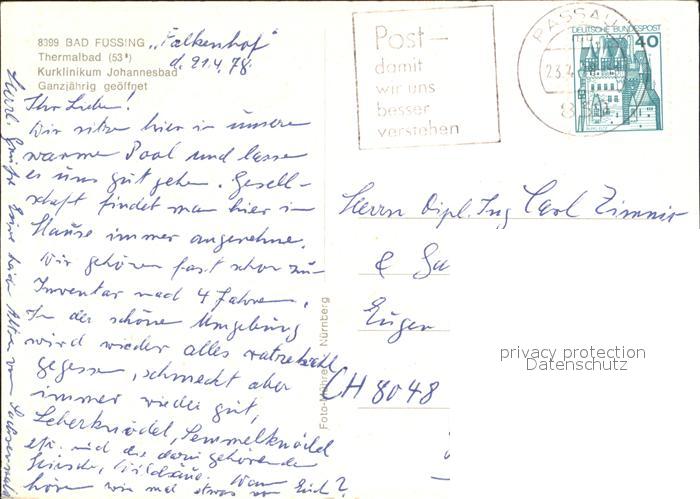 8399 BAD FÜSSING „Falkenhof"
Thermalbad (53°) d. 21.4.78.
Kurklinikum Johannesbad
Ganzjährig geöffnet
Ihr Lieben!
Wir sitzen hier in unserem
warmen Pool und lassen
es uns gut gehen. Gesell-
schaft findet man hier im
Hause immer angenehme.
Wir gehören fast schon zum
Inventar nach 4 Jahren.
In der schönen Umgebung
wird wieder alles
gegessen, schmeckt aber
immer wieder gut,
Leberknödel, Semmelknödel
etc. und die dazu gehörenden
Wann
hören wir mal etwas von Euch?
Herzl. Grüße Eure beiden Alten vom
Foto- Nürnberg
Post –
damit
wir uns
besser
verstehen
PASSAU
23.4
DEUTSCHE BUNDESPOST
40
Herrn Dipl. Ing Carl
&
Eugen
CH 8048
privacy protection
Datenschutz